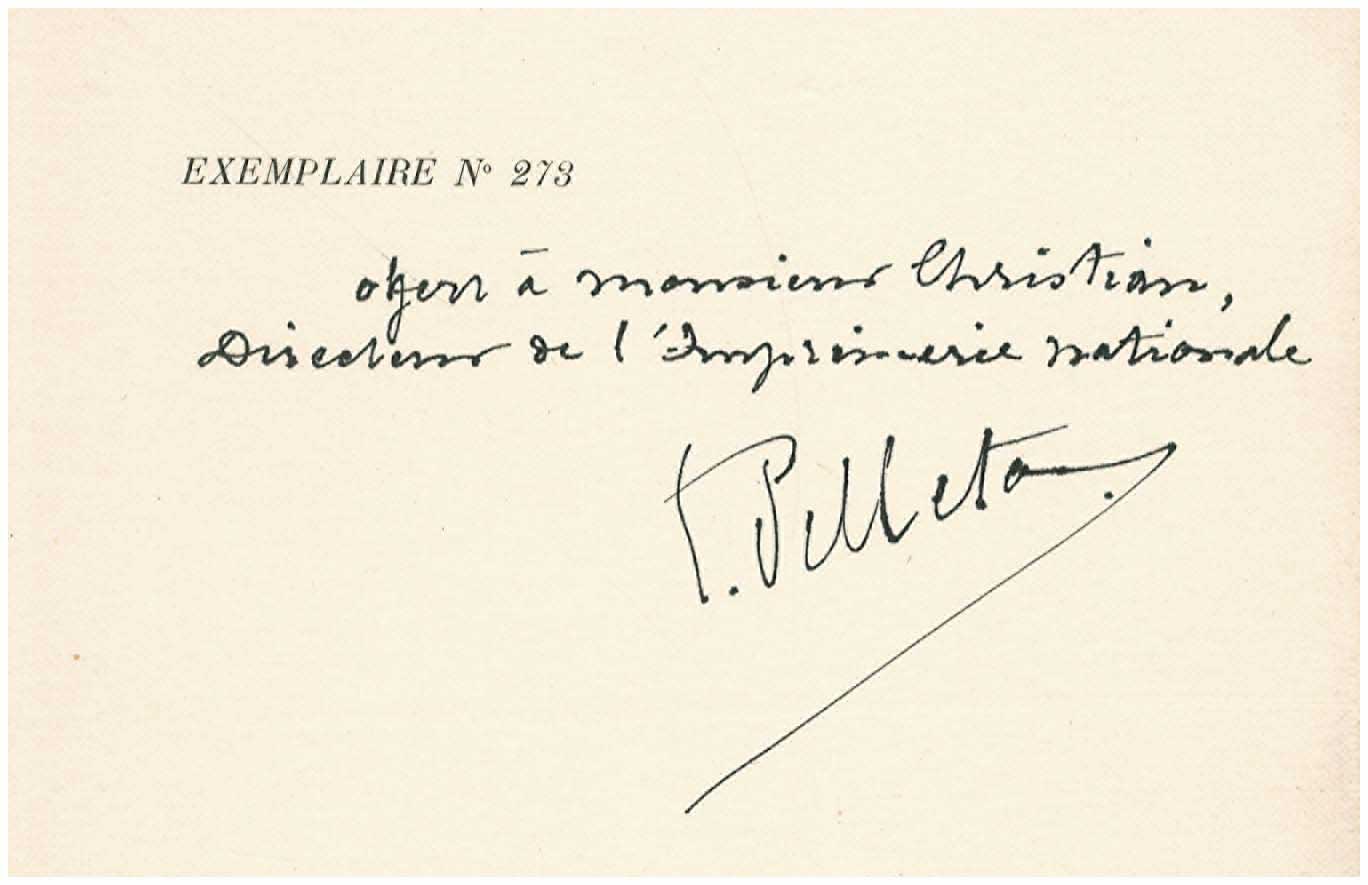 EXEMPLAIRE Nº 273
offert à monsieur Christian,
Directeur de l'Imprimerie nationale
Pelletan